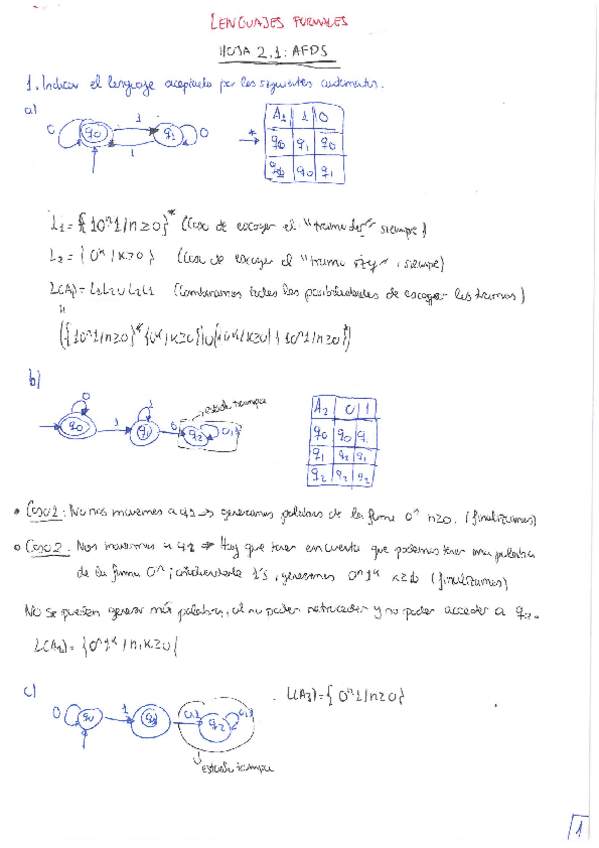 LENGUAJES FORMALES
HOJA 2.1: AFDS
1. Indicar el lenguaje aceptado por los siguientes autómatas.
a)
0 q0 1 q1 0
1
A1 1 0
* q0 q1 q0
q0 q1
L1 = {10ⁿ1/n≥0}* (Caso de escoger el "tramo siempre)
L2 = { 0ᵏ / k≥0 } (Caso de escoger el "tramo siempre)
(Combinamos todas las posibilidades de escoger los tramos)
b)
0 1 estado trampa
q0 1 q1 0 q2 0,1
A2 0 1
q0 q0 q1
q1 q2 q1
q2 q2 q2
• Caso 1: No nos movemos a q1 → generamos palabras de la forma 0ⁿ n≥0. (finalizamos)
• Caso 2: Nos movemos a q1 → Hay que tener en cuenta que podemos tener una palabra
de la forma 0ⁿ; 1's, generamos 0ⁿ1ᵏ k≥1 (finalizamos)
No se pueden generar más palabras, al no poder retroceder y no poder acceder a q2.
L(A2) = {0ⁿ1ᵏ / n,k≥0}
c)
0 q0 1 q1 0,1 q2 0,1
estado trampa
L(A3) = { 0ⁿ1/n≥0}
1